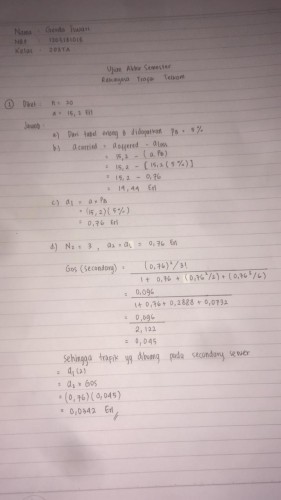 Nama :
NRP :
Kelas :
Ujian Akhir Semester
Rekayasa Trafik Telkom
① Diket : N = 20
a = 15,2 Erl
Jawab :
a) Dari tabel erlang B didapatkan PB = 5%
b) acarried = aoffered - aloss
= 15,2 - (a.PB)
= 15,2 - [15,2 (5%)]
= 15,2 - 0,76
= 14,44 Erl
c) a1 = a * PB
= (15,2)(5%)
= 0,76 Erl
d) N2 = 3, a2 = a1 = 0,76 Erl
Gos (secondary) = (0,76)³/3!
1 + 0,76 + (0,76²/2) + (0,76³/6)
= 0,096
1 + 0,76 + 0,2888 + 0,0732
= 0,096
2,122
= 0,045
Sehingga trafik yg dibuang pada secondary server
= a1(2)
= a2 * Gos
= (0,76)(0,045)
= 0,0342 Erl